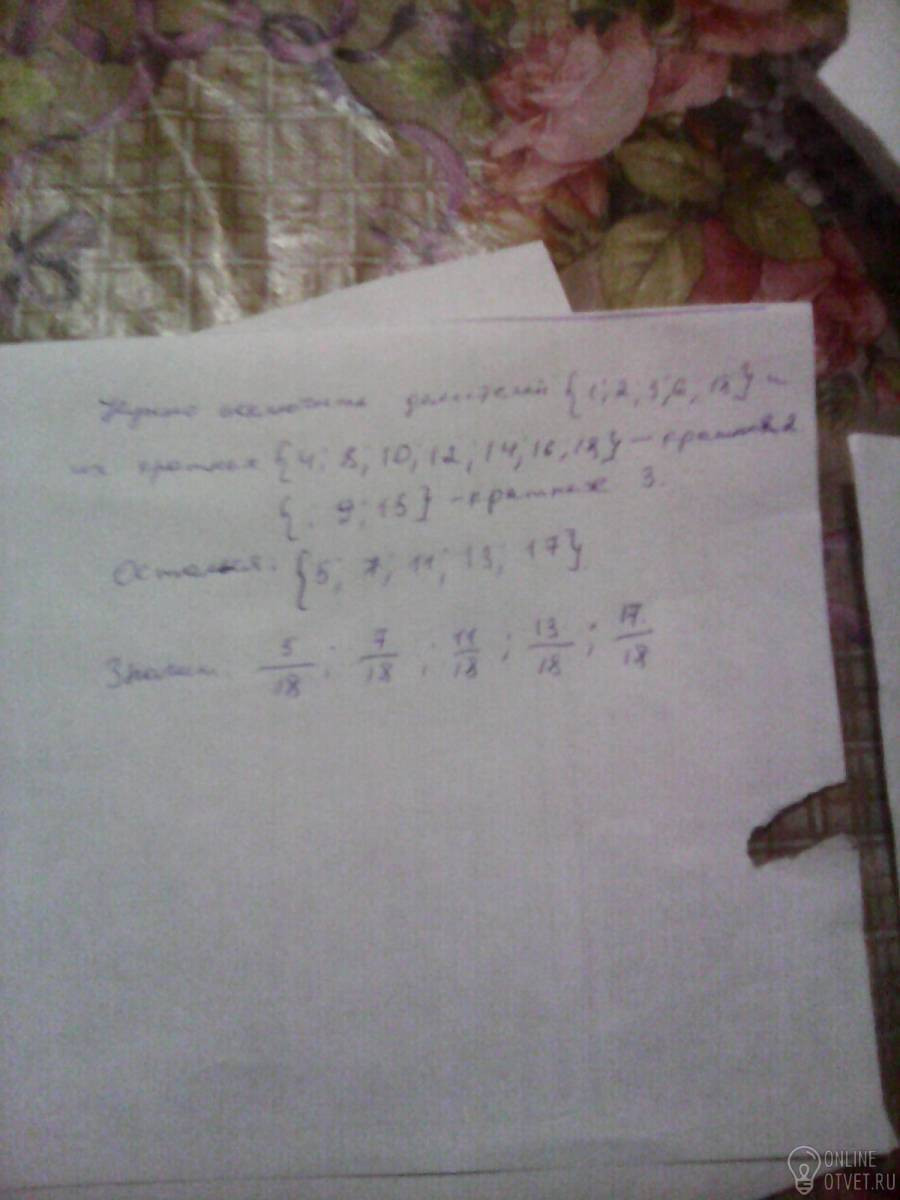 Нужно исключить делителей {1; 2; 3; 6; 18} и
их кратных {4; 8; 10; 12; 14; 16, 18} – кратных 2
{. 9; 15} – кратных 3.
Остались: {5; 7; 11; 13; 17}
Значит 5/18; 7/18; 11/18; 13/18; 17/18
ONLINE
OTVET.RU